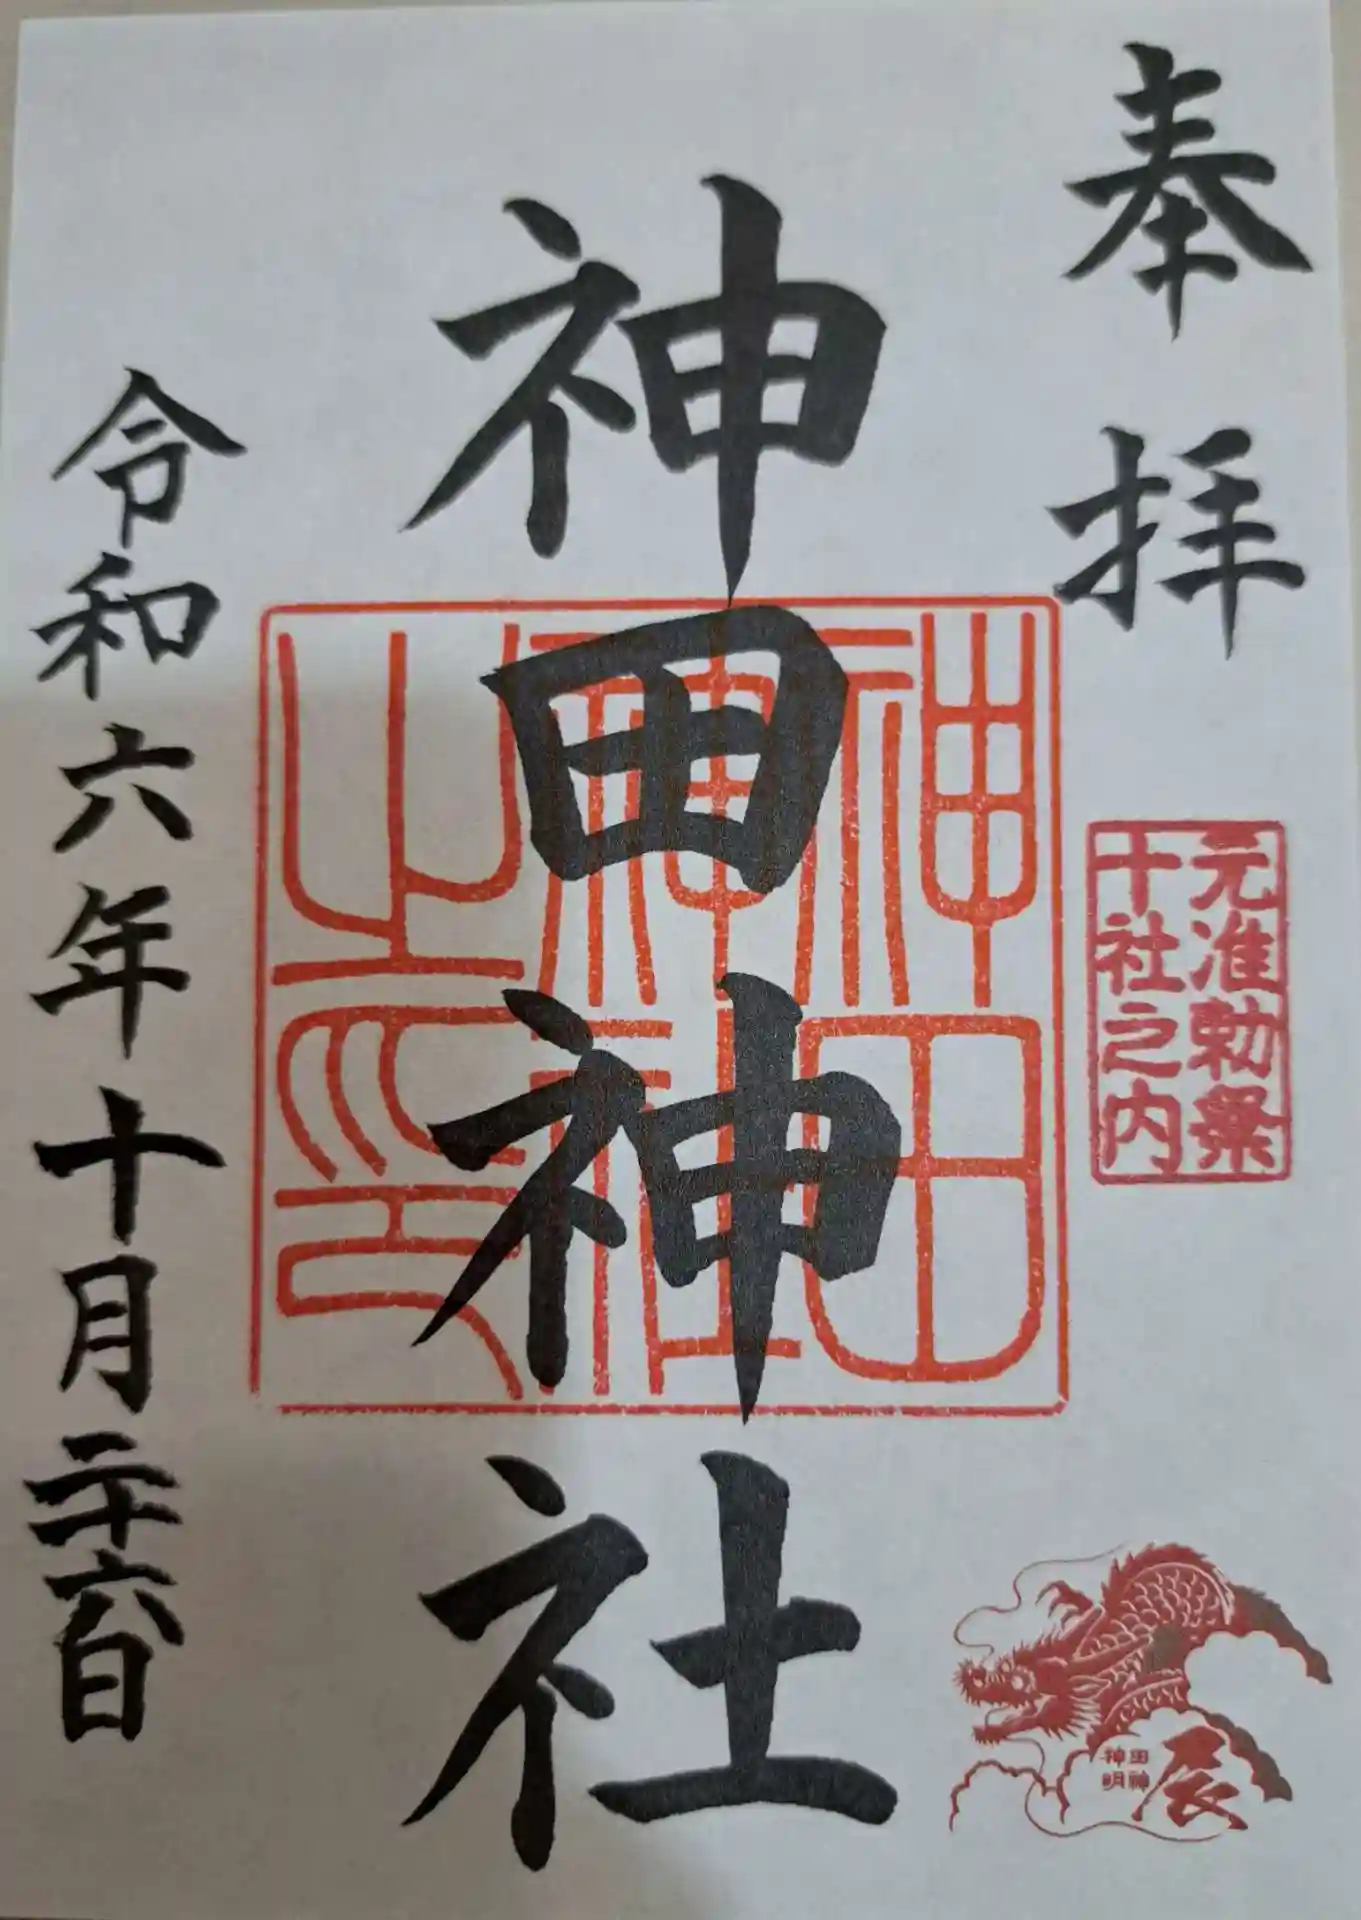 奉拝
元准勅祭
十社之内
神田神社
神田
神社
之印
令和六年十月二十六日
辰
田神
神明